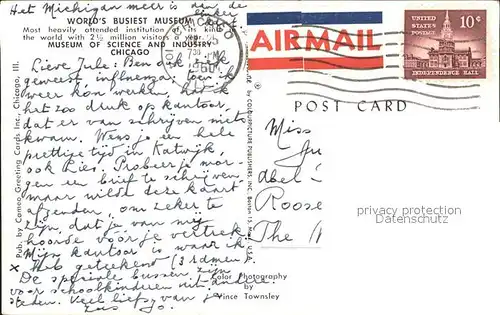 Het Michigan meer is aan de
WORLD'S BUSIEST MUSEUM
Most heavily attended institution of its kind
the world with 2½ million visitors a year.
MUSEUM OF SCIENCE AND INDUSTRY
CHICAGO
Lieve Jule: Ben ook ziek
geweest influenza: toen ik
weer kon werken, had ik
het zoo druk op kantoor,
dat er van schrijven niets
kwam. Wens je een hele
prettige tijd in Katwijk,
ook Lies. Probeer je mor-
gen een brief te schrijven,
maar wilde deze kaart
afzenden, om zeker te
zijn, dat je van mij
hoorde voor je vertrek.
Mijn kantoor is waar ik
x heb geteekend (3 rdmen).
De speciale bussen zijn
voor schoolkinderen uit andere
steden. Veel liefs van je
zus
Pub. by Cameo Greeting Cards Inc., Chicago, Ill.
Color Photography
by
Vince Townsley
BY COLOURPICTURE PUBLISHERS, INC., Boston 15, Mass., U.S.A.
AIR MAIL
UNITED STATES POSTAGE
10¢
INDEPENDENCE HALL
POST CARD
Miss
Ju
Roose
The
privacy protection
watermark